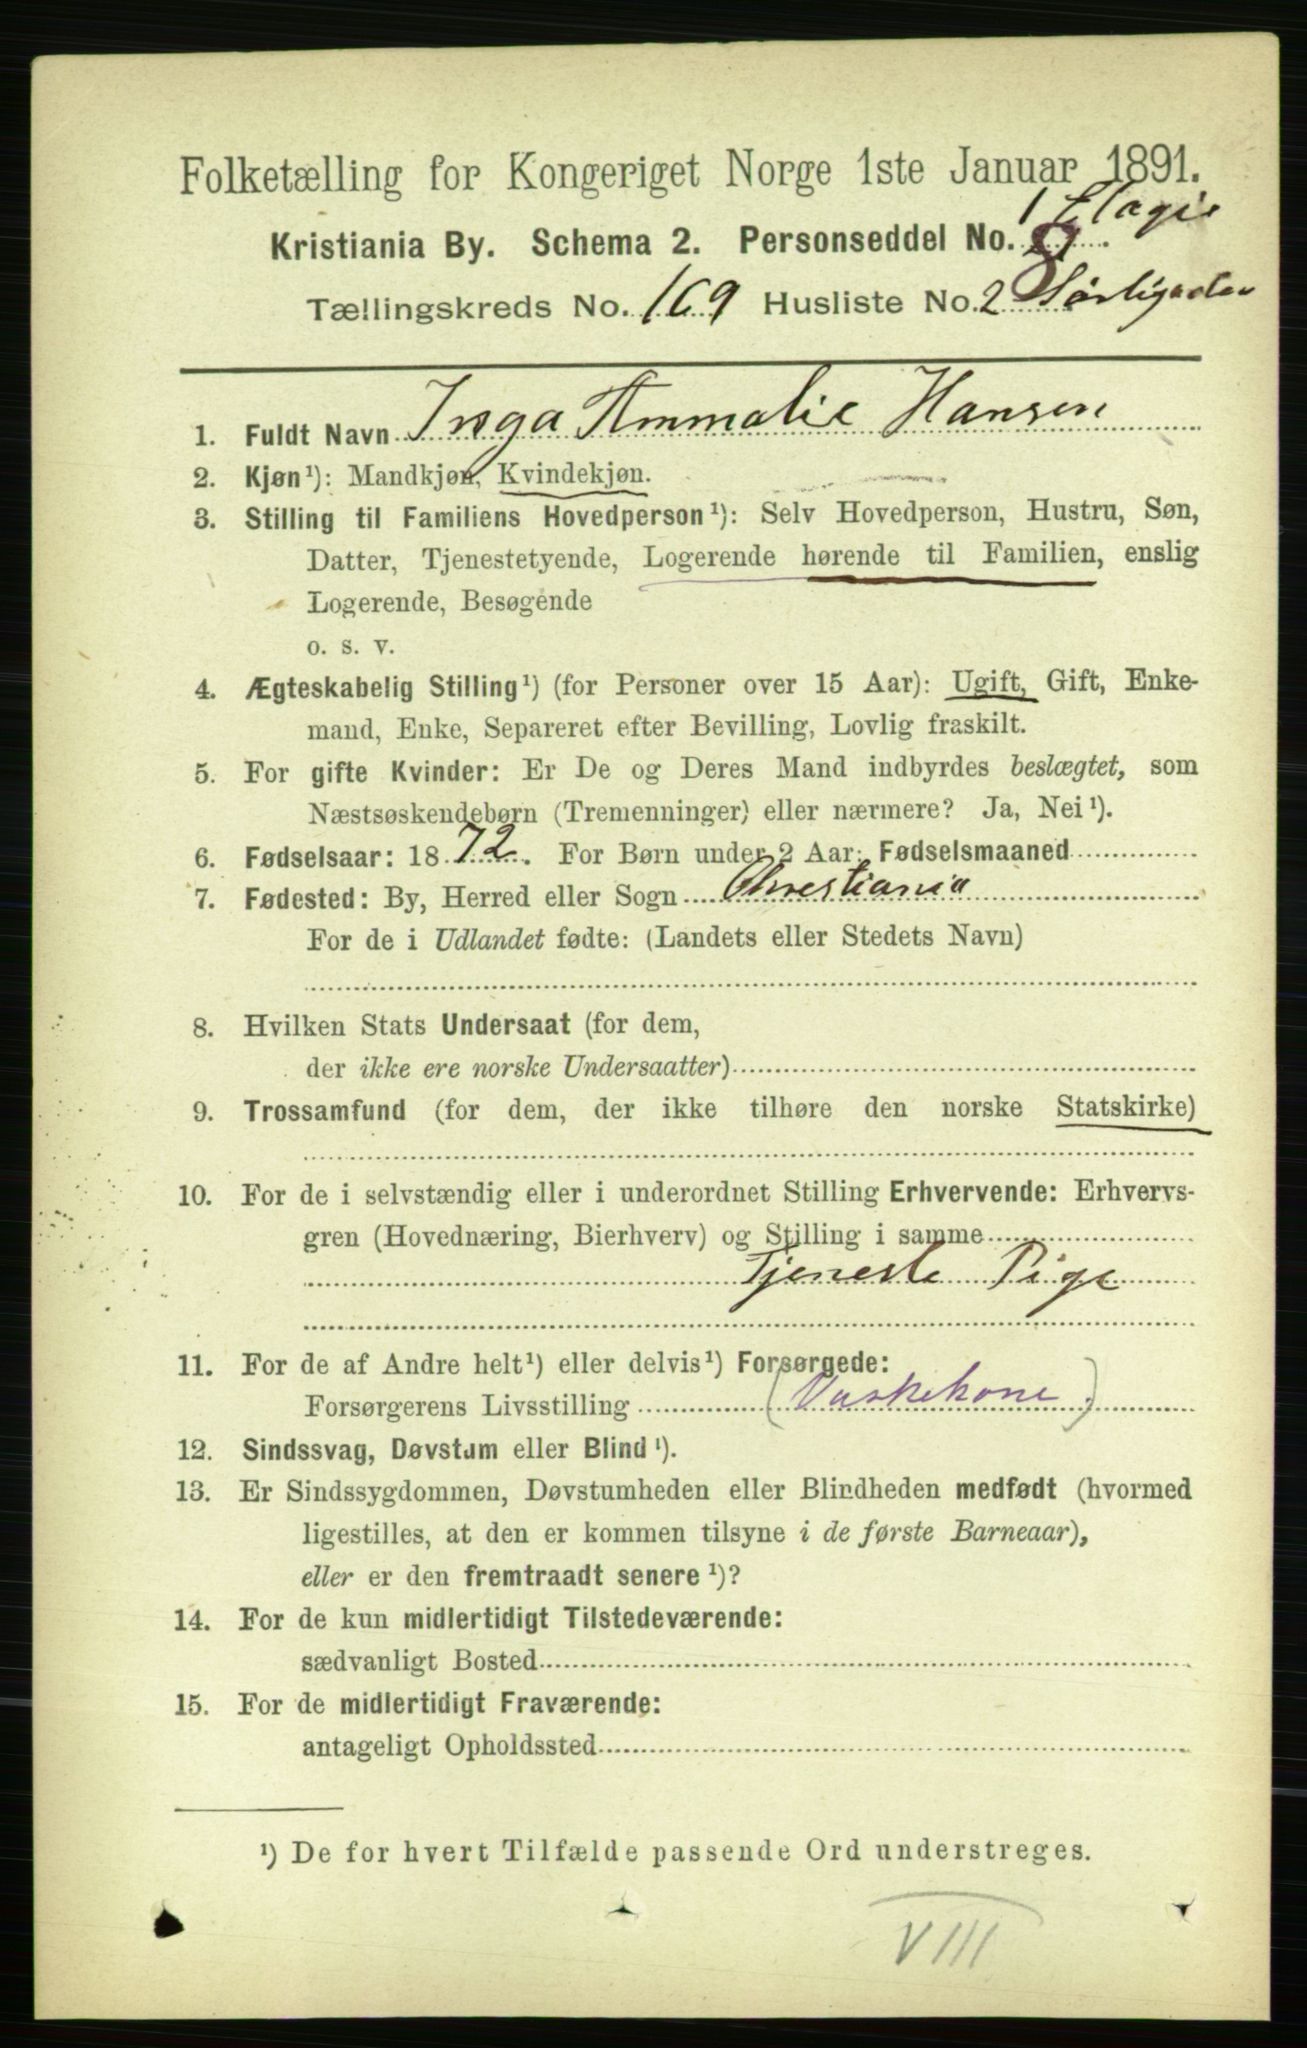 Folketælling for Kongeriget Norge 1ste Januar 1891.
1 Etagie
Kristiania By. Schema 2. Personseddel No. 8.
Tællingskreds No. 169 Husliste No. 2 Sörligaden
1. Fuldt Navn Inga Ammalie Hansen
2. Kjøn¹): Mandkjøn, Kvindekjøn.
3. Stilling til Familiens Hovedperson¹): Selv Hovedperson, Hustru, Søn,
Datter, Tjenestetyende, Logerende hørende til Familien, enslig
Logerende, Besøgende
o. s. v.
4. Ægteskabelig Stilling¹) (for Personer over 15 Aar): Ugift, Gift, Enke-
mand, Enke, Separeret efter Bevilling, Lovlig fraskilt.
5. For gifte Kvinder: Er De og Deres Mand indbyrdes beslægtet, som
Næstsøskendebørn (Tremenninger) eller nærmere? Ja, Nei¹).
6. Fødselsaar: 1872. For Børn under 2 Aar: Fødselsmaaned
7. Fødested: By, Herred eller Sogn Chrestiania
For de i Udlandet fødte: (Landets eller Stedets Navn)
8. Hvilken Stats Undersaat (for dem,
der ikke ere norske Undersaatter)
9. Trossamfund (for dem, der ikke tilhøre den norske Statskirke)
10. For de i selvstændig eller i underordnet Stilling Erhvervende: Erhvervs-
gren (Hovednæring, Bierhverv) og Stilling i samme
Tjeneste Pige
11. For de af Andre helt¹) eller delvis¹) Forsørgede:
Forsørgerens Livsstilling (Vaskekone.)
12. Sindssvag, Døvstum eller Blind¹).
13. Er Sindssygdommen, Døvstumheden eller Blindheden medfødt (hvormed
ligestilles, at den er kommen tilsyne i de første Barneaar),
eller er den fremtraadt senere¹)?
14. For de kun midlertidigt Tilstedeværende:
sædvanligt Bosted
15. For de midlertidigt Fraværende:
antageligt Opholdssted
¹) De for hvert Tilfælde passende Ord understreges.
VIII